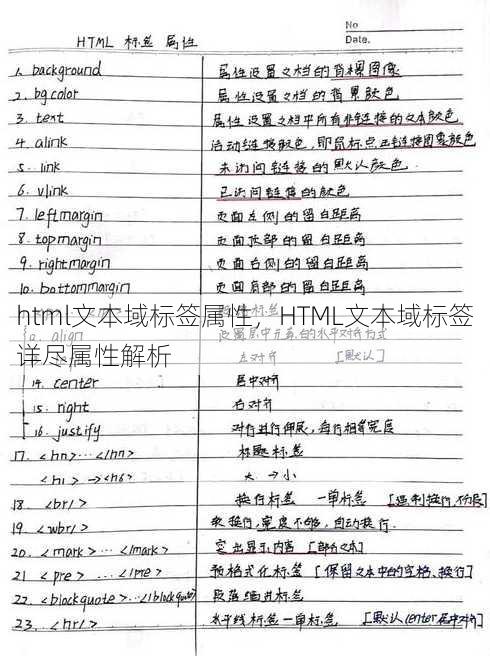 No
Date.
HTML 标签 属性
1. background 属性设置文档的背景图像
2. bgcolor 属性设置文档的背景颜色
3. text 属性设置文档中所有非链接的文本颜色
4. alink 活动链接颜色,即鼠标点击链接时颜色
5. link 未访问链接的默认颜色
6. vlink 已访问链接的颜色
7. leftmargin 页面左侧的留白距离
8. topmargin 页面顶部的留白距离
9. rightmargin 页面右侧的留白距离
10. bottommargin 页面底部的留白距离
html文本域标签属性，HTML文本域标签
align 设置居中元素的水平对齐方式
详尽属性解析
左对齐 [默认]
14. center 居中对齐
15. right 右对齐
16. justify 对行进行伸展,每行相等宽度
17. <hn>...</hn> 标题标签
<h1> → <h6> 大 → 小
18. <br/> 换行标签 一单标签 [强制换行,不分段]
19. <wbr/> 软换行,宽度不够,自动换行.
20. <mark>...</mark> 突出显示内容 [部分文本]
21 <pre>...</pre> 预格式化标签 [保留文本中的空格、换行]
22. <blockquote>...</blockquote> 段落缩进标签
23. <hr/> 水平线标签一单标签 [默认center居中对齐]